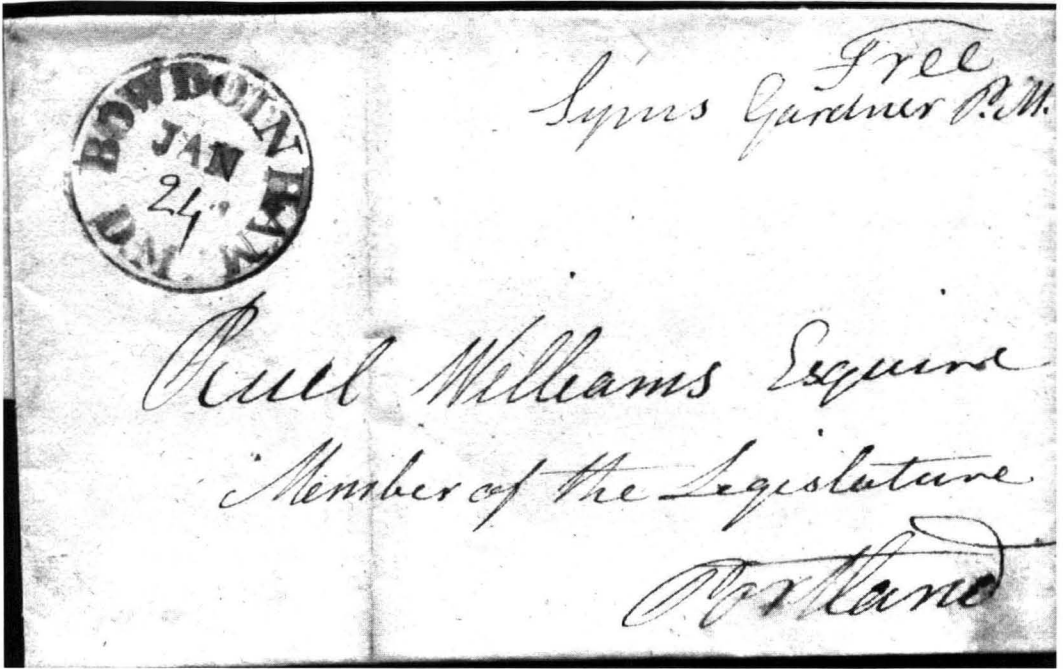 BOWDOINHAM
JAN
24
Free
Syms Gardner P.M.
Ruel Williams Esquire
Member of the Legislature
Portland